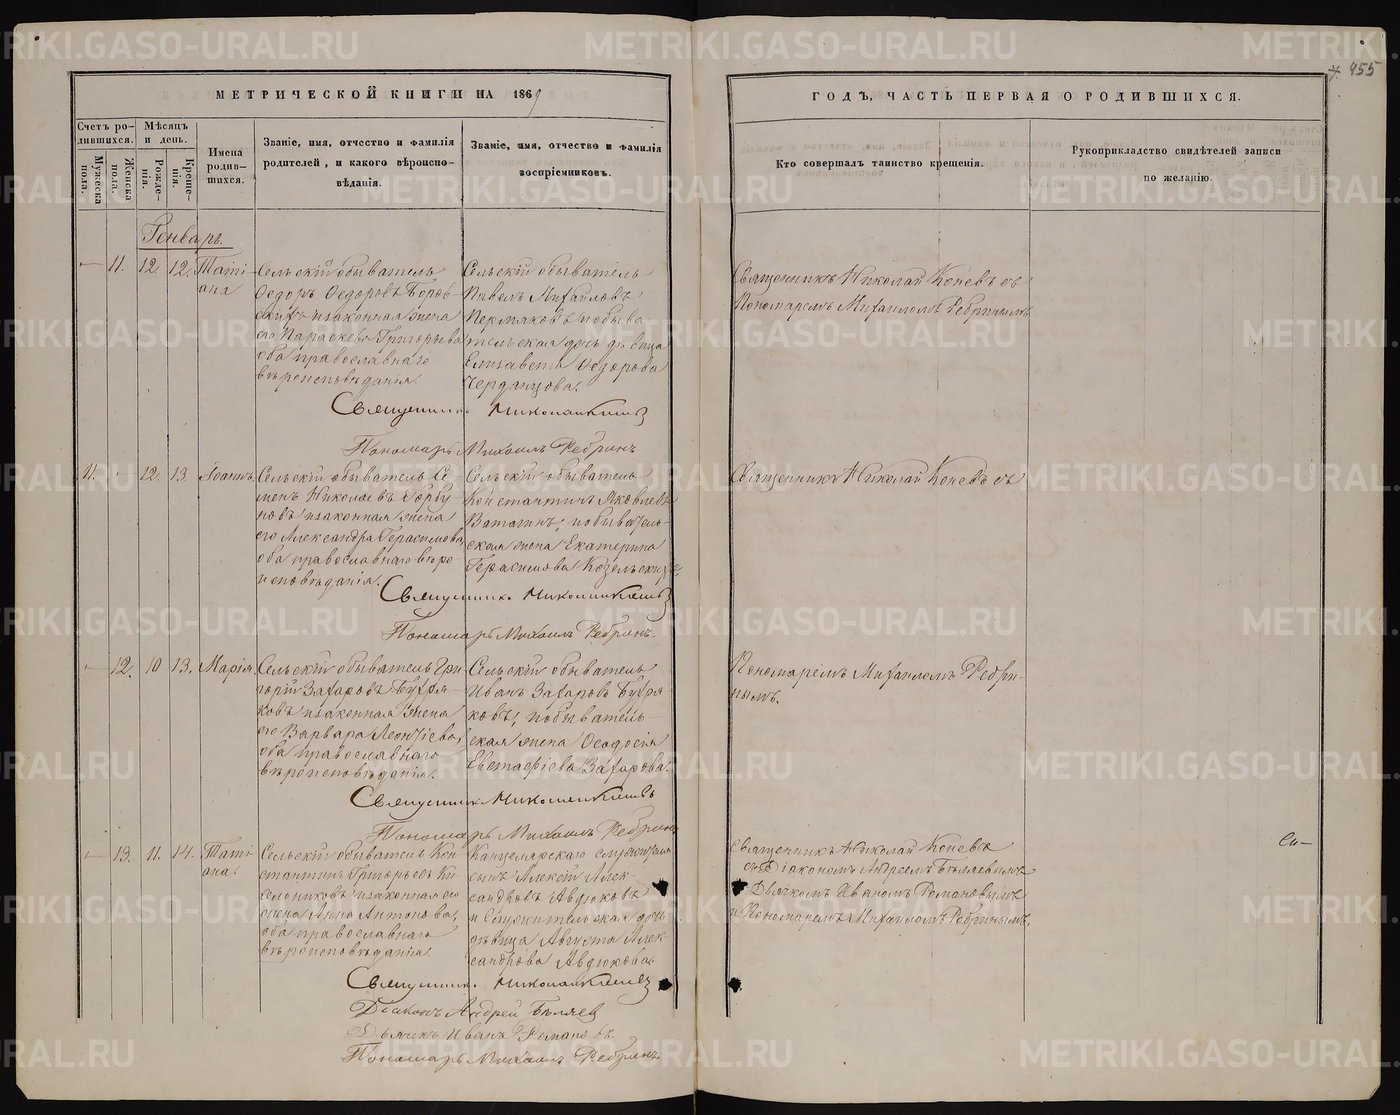 455
МЕТРИЧЕСКОЙ КНИГИ НА 1869
ГОДЪ, ЧАСТЬ ПЕРВАЯ О РОДИВШИХСЯ.
Счетъ ро-
дившихся.
Мужеска
пола.
Женска
пола.
Мѣсяцъ
и день.
Рожде-
нія.
Креще-
нія.
Имена
родив-
шихся.
Званіе, имя, отчество и фамилія
родителей, и какого вѣроиспо-
вѣданія.
Званіе, имя, отчество и фамилія
воспріемниковъ.
Кто совершалъ таинство крещенія.
Рукоприкладство свидѣтелей записи
по желанію.
Генварь.
— 11. 12. 12. Тати-
ана
Сельскій обыватель
Ѳедоръ Ѳедоровъ Боров-
скихъ и законная жена
его Параскева Григорьева
оба православнаго
вѣроисповѣданія.
Сельскій обыватель
Павелъ Михайловъ
Пермяковъ и обыва-
тельская дочь дѣвица
Елизавета Ѳедорова
Черданцова.
Священникъ Николай Коневъ съ
Пономаремъ Михаиломъ Ребринымъ
Священникъ Николай Коневъ
Пономарь Михаилъ Ребринъ
11. 12. 13. Іоаннъ
Сельскій обыватель Се-
менъ Николаевъ Горбу-
новъ и законная жена
его Александра Герасимова,
оба православнаго вѣро-
исповѣданія.
Сельскій обыватель
Константинъ Яковлевъ
Ватагинъ; и обыватель-
ская жена Екатерина
Герасимова Козельскихъ.
Священникъ Николай Коневъ съ
Священникъ Николай Коневъ
Пономарь Михаилъ Ребринъ.
— 12. 10 13. Марія.
Сельскій обыватель Гри-
горій Захаровъ Бухря-
ковъ и законная жена
его Варвара Леонтіева,
оба православнаго
вѣроисповѣданія.
Сельскій обыватель
Иванъ Захаровъ Бухря-
ковъ; и обыватель-
ская жена Ѳеодосія
Евстафіева Захарова.
Пономаремъ Михаиломъ Ребри-
нымъ.
Священникъ Николай Коневъ
Пономарь Михаилъ Ребринъ
— 13. 11. 14. Тати-
ана.
Сельскій обыватель Кон-
стантинъ Григорьевъ Ки-
сельниковъ и законная его
жена Анна Антонова,
оба православнаго
вѣроисповѣданія.
Канцелярскаго служителя
сынъ Алексѣй Алек-
сандровъ Авдюковъ
и служительская дочь
дѣвица Августа Алек-
сандрова Авдюкова.
Священникъ Николай Коневъ
съ Діакономъ Андреемъ Бѣляевымъ
Дьячкомъ Иваномъ Романовымъ
и Пономаремъ Михаиломъ Ребринымъ.
Священникъ Николай Коневъ
Діаконъ Андрей Бѣляев
Дьячекъ Иванъ Романовъ
Пономарь Михаилъ Ребринъ.
METRIKI.GASO-URAL.RU